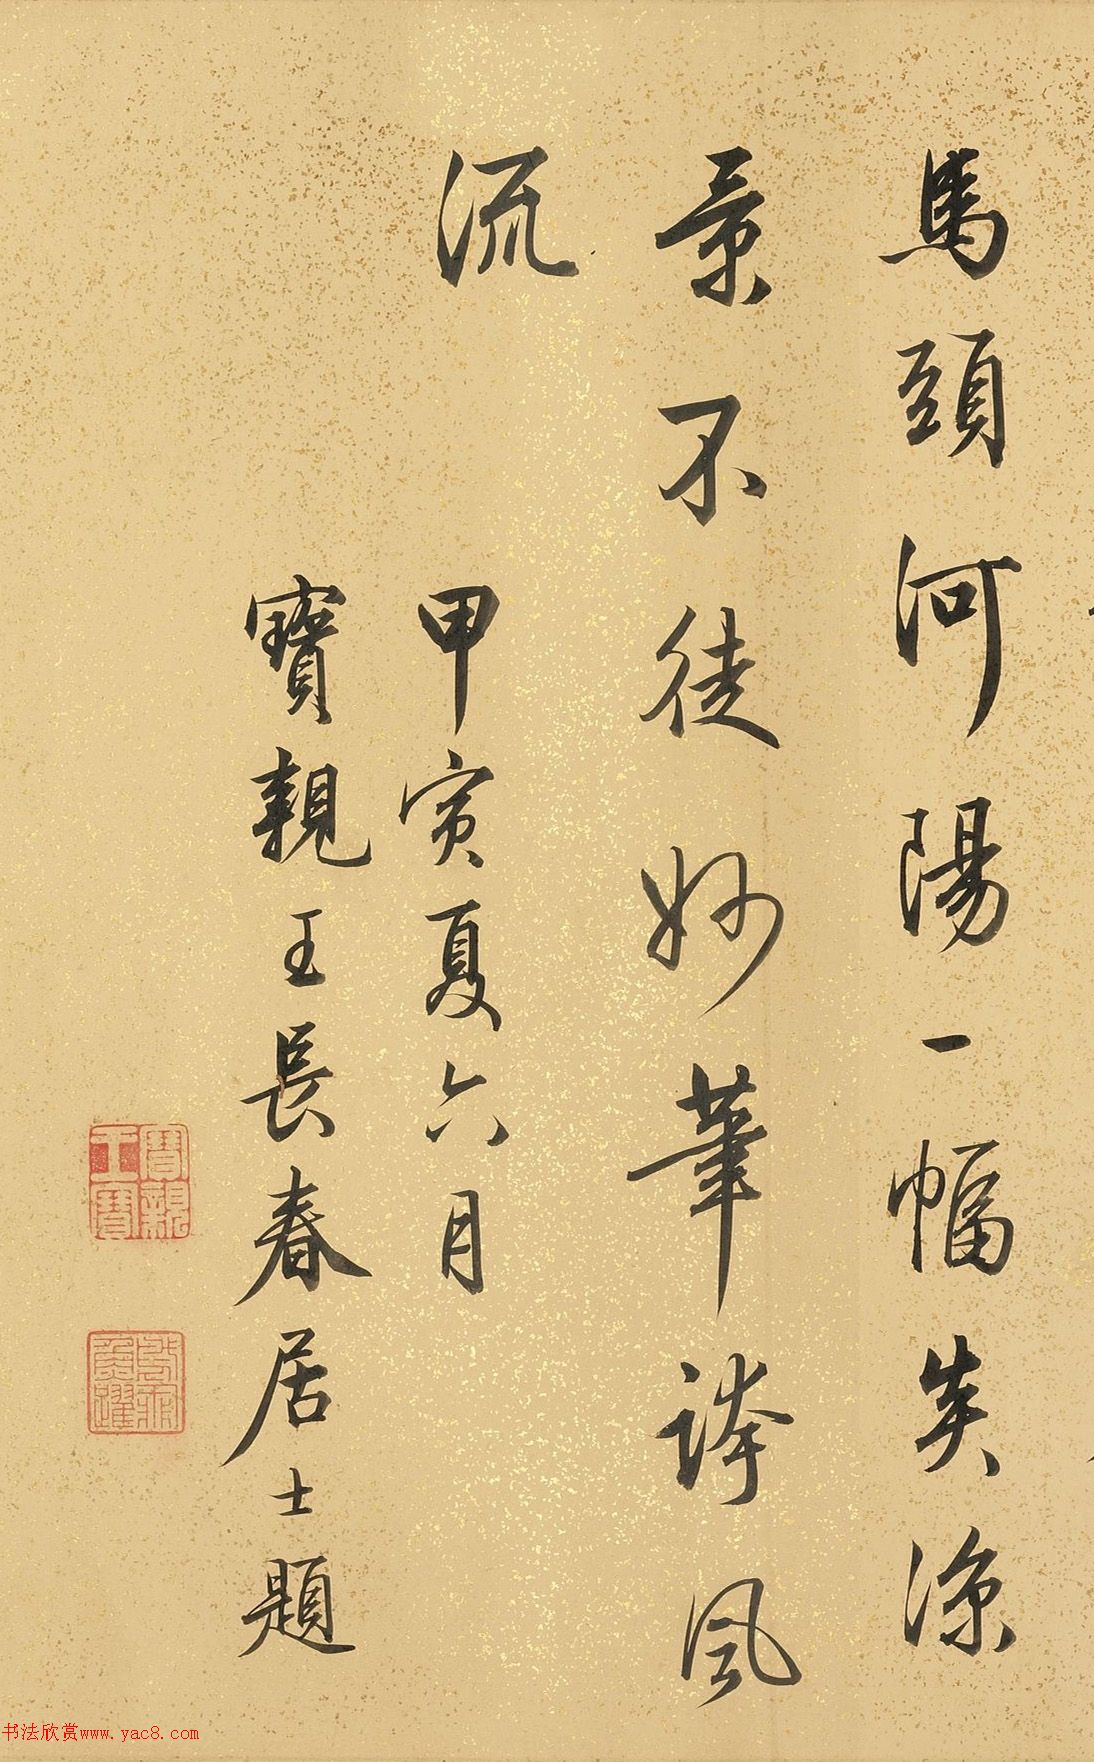 馬頭河陽一幅失涼
景不徒妙筆誇風
流
甲寅夏六月
寶親王長春居士題
寶親王寶
书法欣赏www.yac8.com